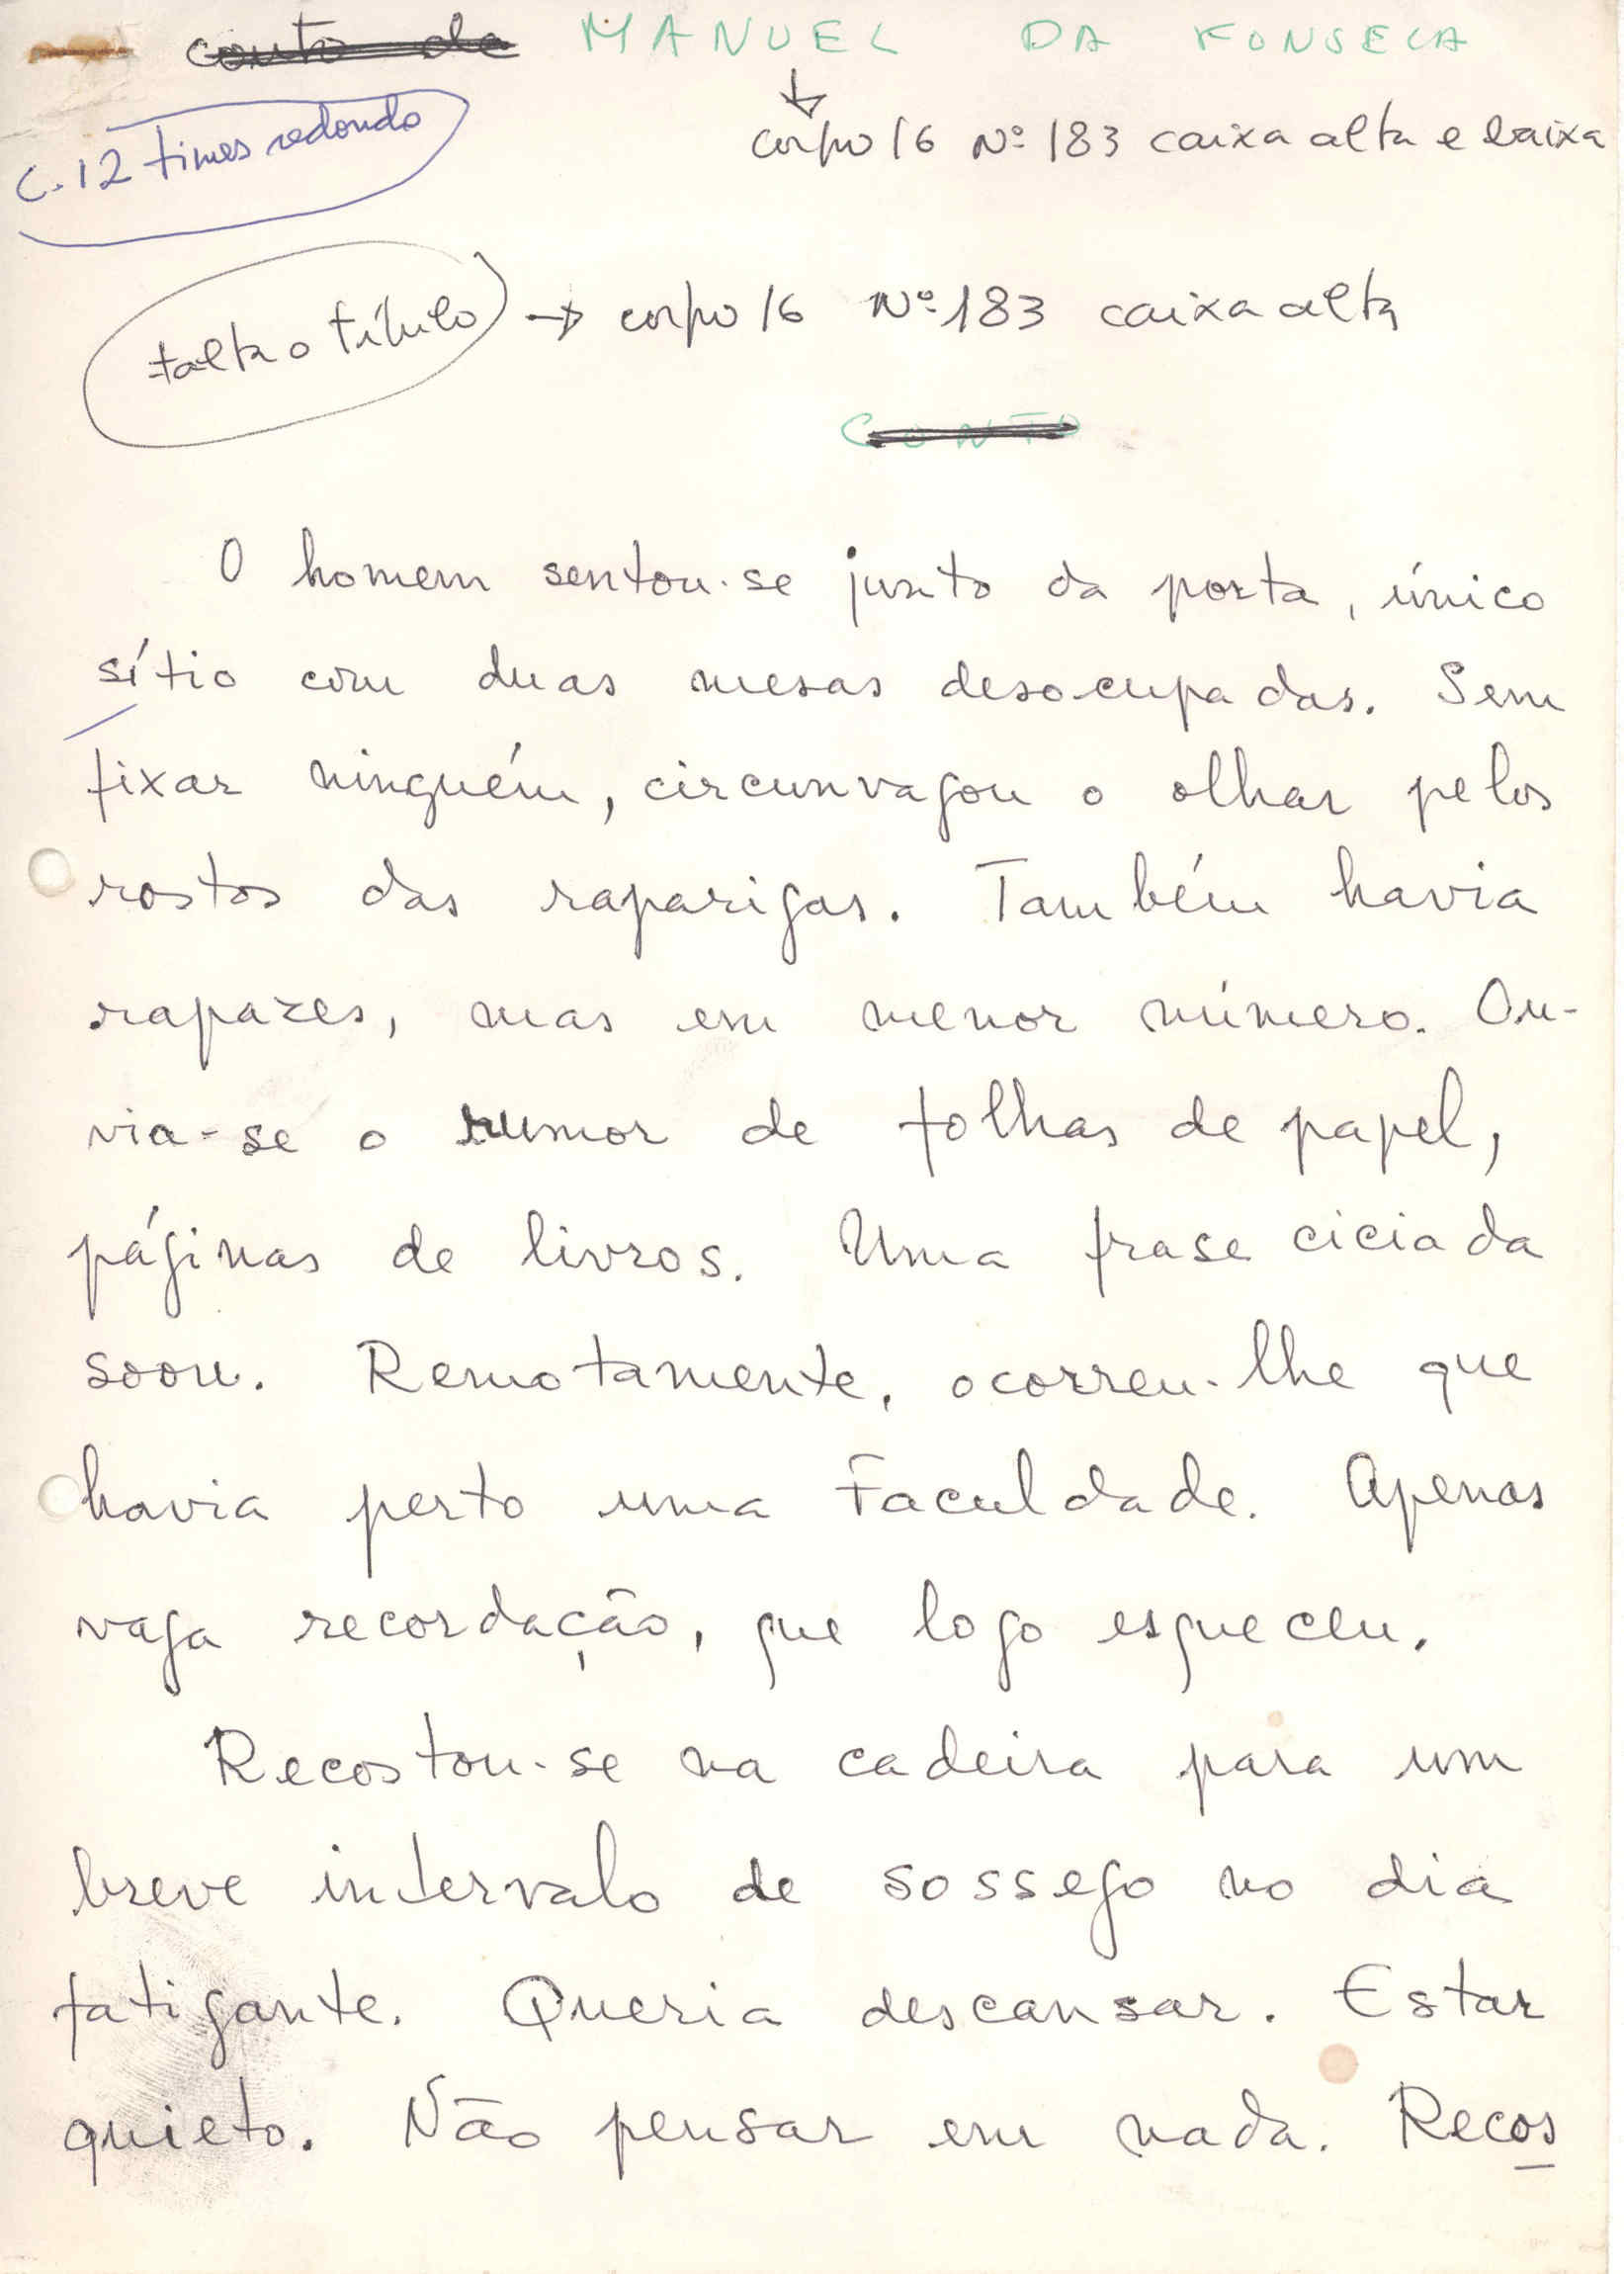 conto de MANUEL DA FONSECA
corpo 16 Nº 183 caixa alta e baixa
C. 12 times redondo
falta o título → corpo 16 Nº 183 caixa alta
CONTO
O homem sentou-se junto da porta, único
sítio com duas mesas desocupadas. Sem
fixar ninguém, circunvagou o olhar pelos
rostos das raparigas. Também havia
rapazes, mas em menor número. Ou-
via-se o rumor de folhas de papel,
páginas de livros. Uma frase ciciada
soou. Remotamente, ocorreu-lhe que
havia perto uma Faculdade. Apenas
vaga recordação, que logo esqueceu.
Recostou-se na cadeira para um
breve intervalo de sossego no dia
fatigante. Queria descansar. Estar
quieto. Não pensar em nada. Recos